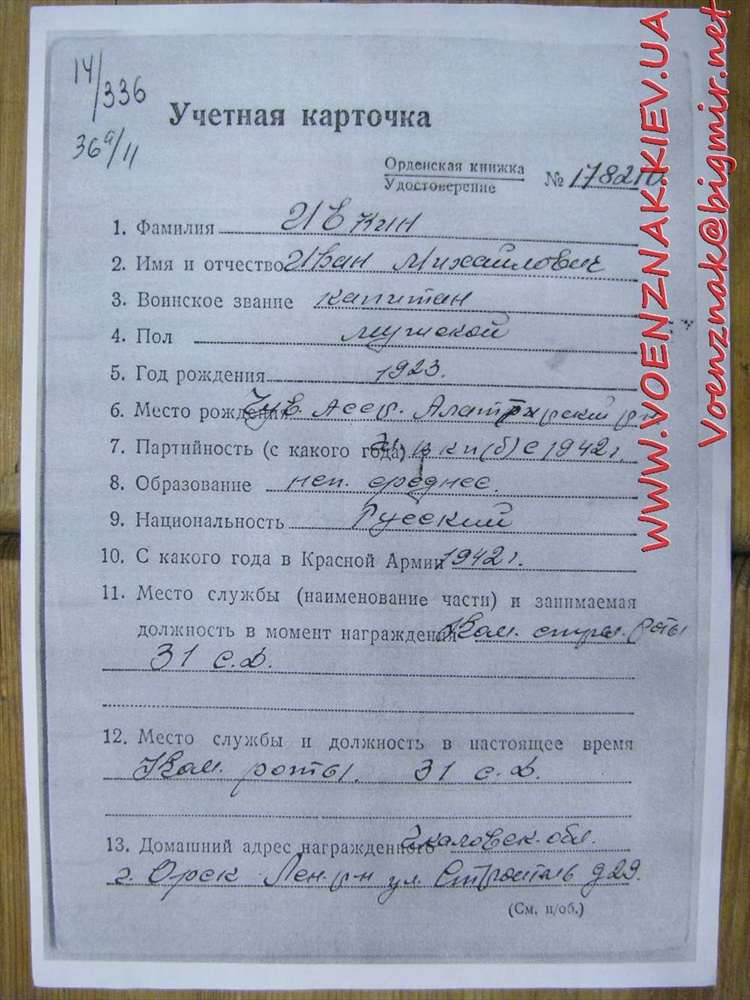 14/336
36а/11
Учетная карточка
Орденская книжка
Удостоверение № 178210
1. Фамилия Ивкин
2. Имя и отчество Иван Михайлович
3. Воинское звание капитан
4. Пол мужской
5. Год рождения 1923.
6. Место рождения Чув. Асср. Алатырский р-н
7. Партийность (с какого года) чл. вкп(б) с 1942 г.
8. Образование неп. среднее.
9. Национальность Русский
10. С какого года в Красной Армии 1942 г.
11. Место службы (наименование части) и занимаемая
должность в момент награждения Ком. стрел. роты
31 с. д.
12. Место службы и должность в настоящее время
Ком. роты. 31 с. д.
13. Домашний адрес награжденного Чкаловск. обл.
г. Орск Лен. р-н ул. Строитель д 29.
(См. н/об.)
WWW.VOENZNAK.KIEV.UA
Voenznak@bigmir.net